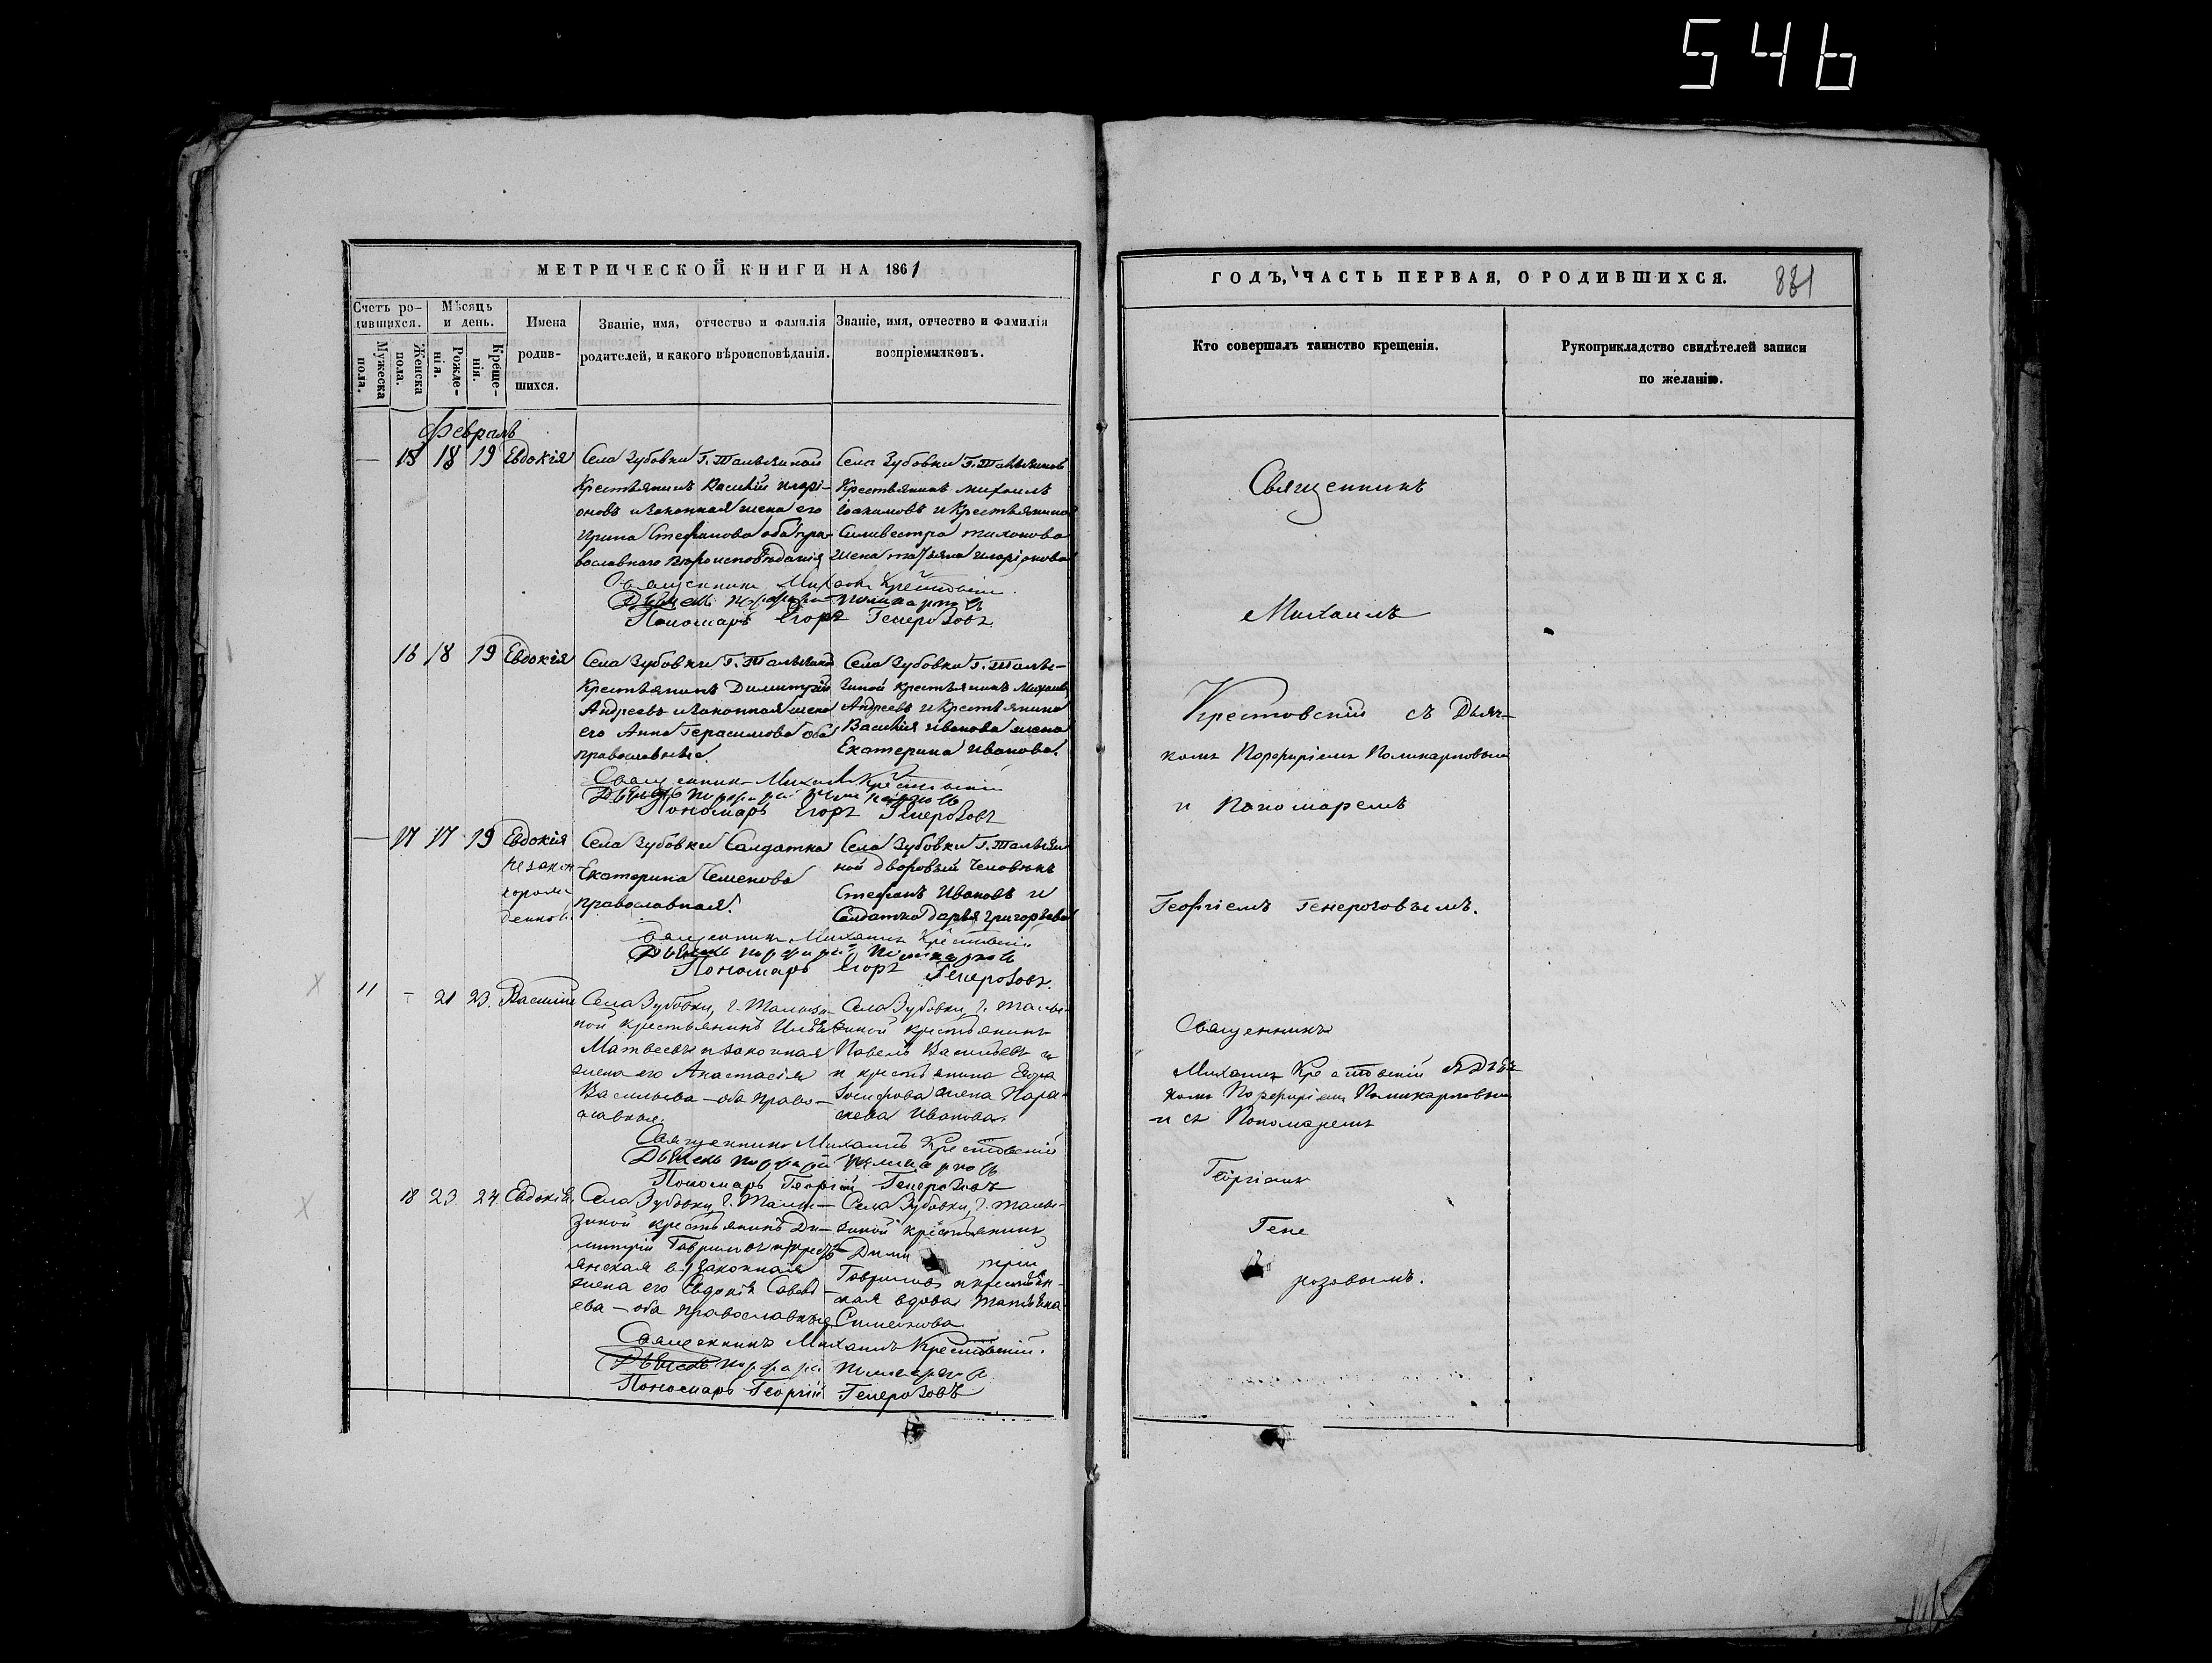 546
МЕТРИЧЕСКОЙ КНИГИ НА 1861
Счетъ родившихся.
Мужеска пола.
Женска пола.
Мѣсяцъ и день.
Рожденія.
Крещенія.
Имена родившихся.
Званіе, имя, отчество и фамилія родителей, и какого вѣроисповѣданія.
Званіе, имя, отчество и фамилія воспріемниковъ.
Февраль
— 15 18 19 Евдокія
Села Зубовки Г. Талызиной
Крестьянинъ Василій Иларі-
оновъ и законная жена его
Ирина Стефанова оба пра-
вославнаго вѣроисповѣданія
Села Зубовки Г. Талызиной
Крестьянинъ Михаилъ
Іоакимовъ и Крестьянина
Силивестра Тихонова
жена Татьяна Иларіонова
Священникъ Михаилъ Крестовскій
Дьячекъ Порфирій Поликарповъ
Пономарь Егоръ Генерозовъ.
16 18 19 Евдокія
Села Зубовки Г. Талызиной
Крестьянинъ Димитрій
Андреевъ и законная жена
его Анна Герасимова оба
православные.
Села Зубовки Г. Талы-
зиной крестьянинъ Михаилъ
Андреевъ и Крестьянина
Василія Иванова жена
Екатерина Иванова.
Священникъ Михаилъ Крестовскій
Дьячекъ Порфирій Поликарповъ
Пономарь Егоръ Генерозовъ
— 17 17 19 Евдокія
незакон
норож
денная
Села Зубовки Салдатка
Екатерина Семенова
православная.
Села Зубовки Г. Талызи
ной дворовый человѣкъ
Стефанъ Ивановъ и
Салдатка Дарья Григорьева
Священникъ Михаилъ Крестовскій
Дьячекъ Порфирій Поликарповъ
Пономарь Егоръ Генерозовъ.
11 — 21 23. Василій
Села Зубовки, г. Талызи-
ной крестьянинъ Илья
Матвеевъ и законная
жена его Анастасія
Васильева — оба право-
славные.
Села Зубовки, г. Талы-
зиной крестьянинъ
Павелъ Васильевъ и
и крестьянина Егора
Іосифова жена Пара-
скева Иванова.
Священникъ Михаилъ Крестовскій
Дьячекъ Порфирій Поликарповъ
Пономарь Георгій Генерозовъ
18 23. 24. Евдокія.
Села Зубовки, г. Талы-
зиной крестьянинъ Ди-
митрій Гавриловъ
законная
жена его Евдокія Савель-
ева — оба православные
Села Зубовки, г. Талы-
зиной крестьянинъ
Дими трій
Гавриловъ и крестьян-
ская вдова Татьяна
Симеонова
Священникъ Михаилъ Крестовскій.
Дьячекъ Порфирій Поликарповъ
Пономарь Георгій Генерозовъ
ГОДЪ, ЧАСТЬ ПЕРВАЯ, О РОДИВШИХСЯ.
881
Кто совершалъ таинство крещенія.
Рукоприкладство свидѣтелей записи по желанію.
Священникъ
Михаилъ
Крестовскій съ Дьяч-
комъ Порфиріемъ Поликарповымъ
и Пономаремъ
Георгіемъ Генерозовымъ.
Священникъ
Михаилъ Крестовскій съ Дьяч-
комъ Порфиріемъ Поликарповымъ
и съ Пономаремъ
Георгіемъ
Гене
розовымъ.